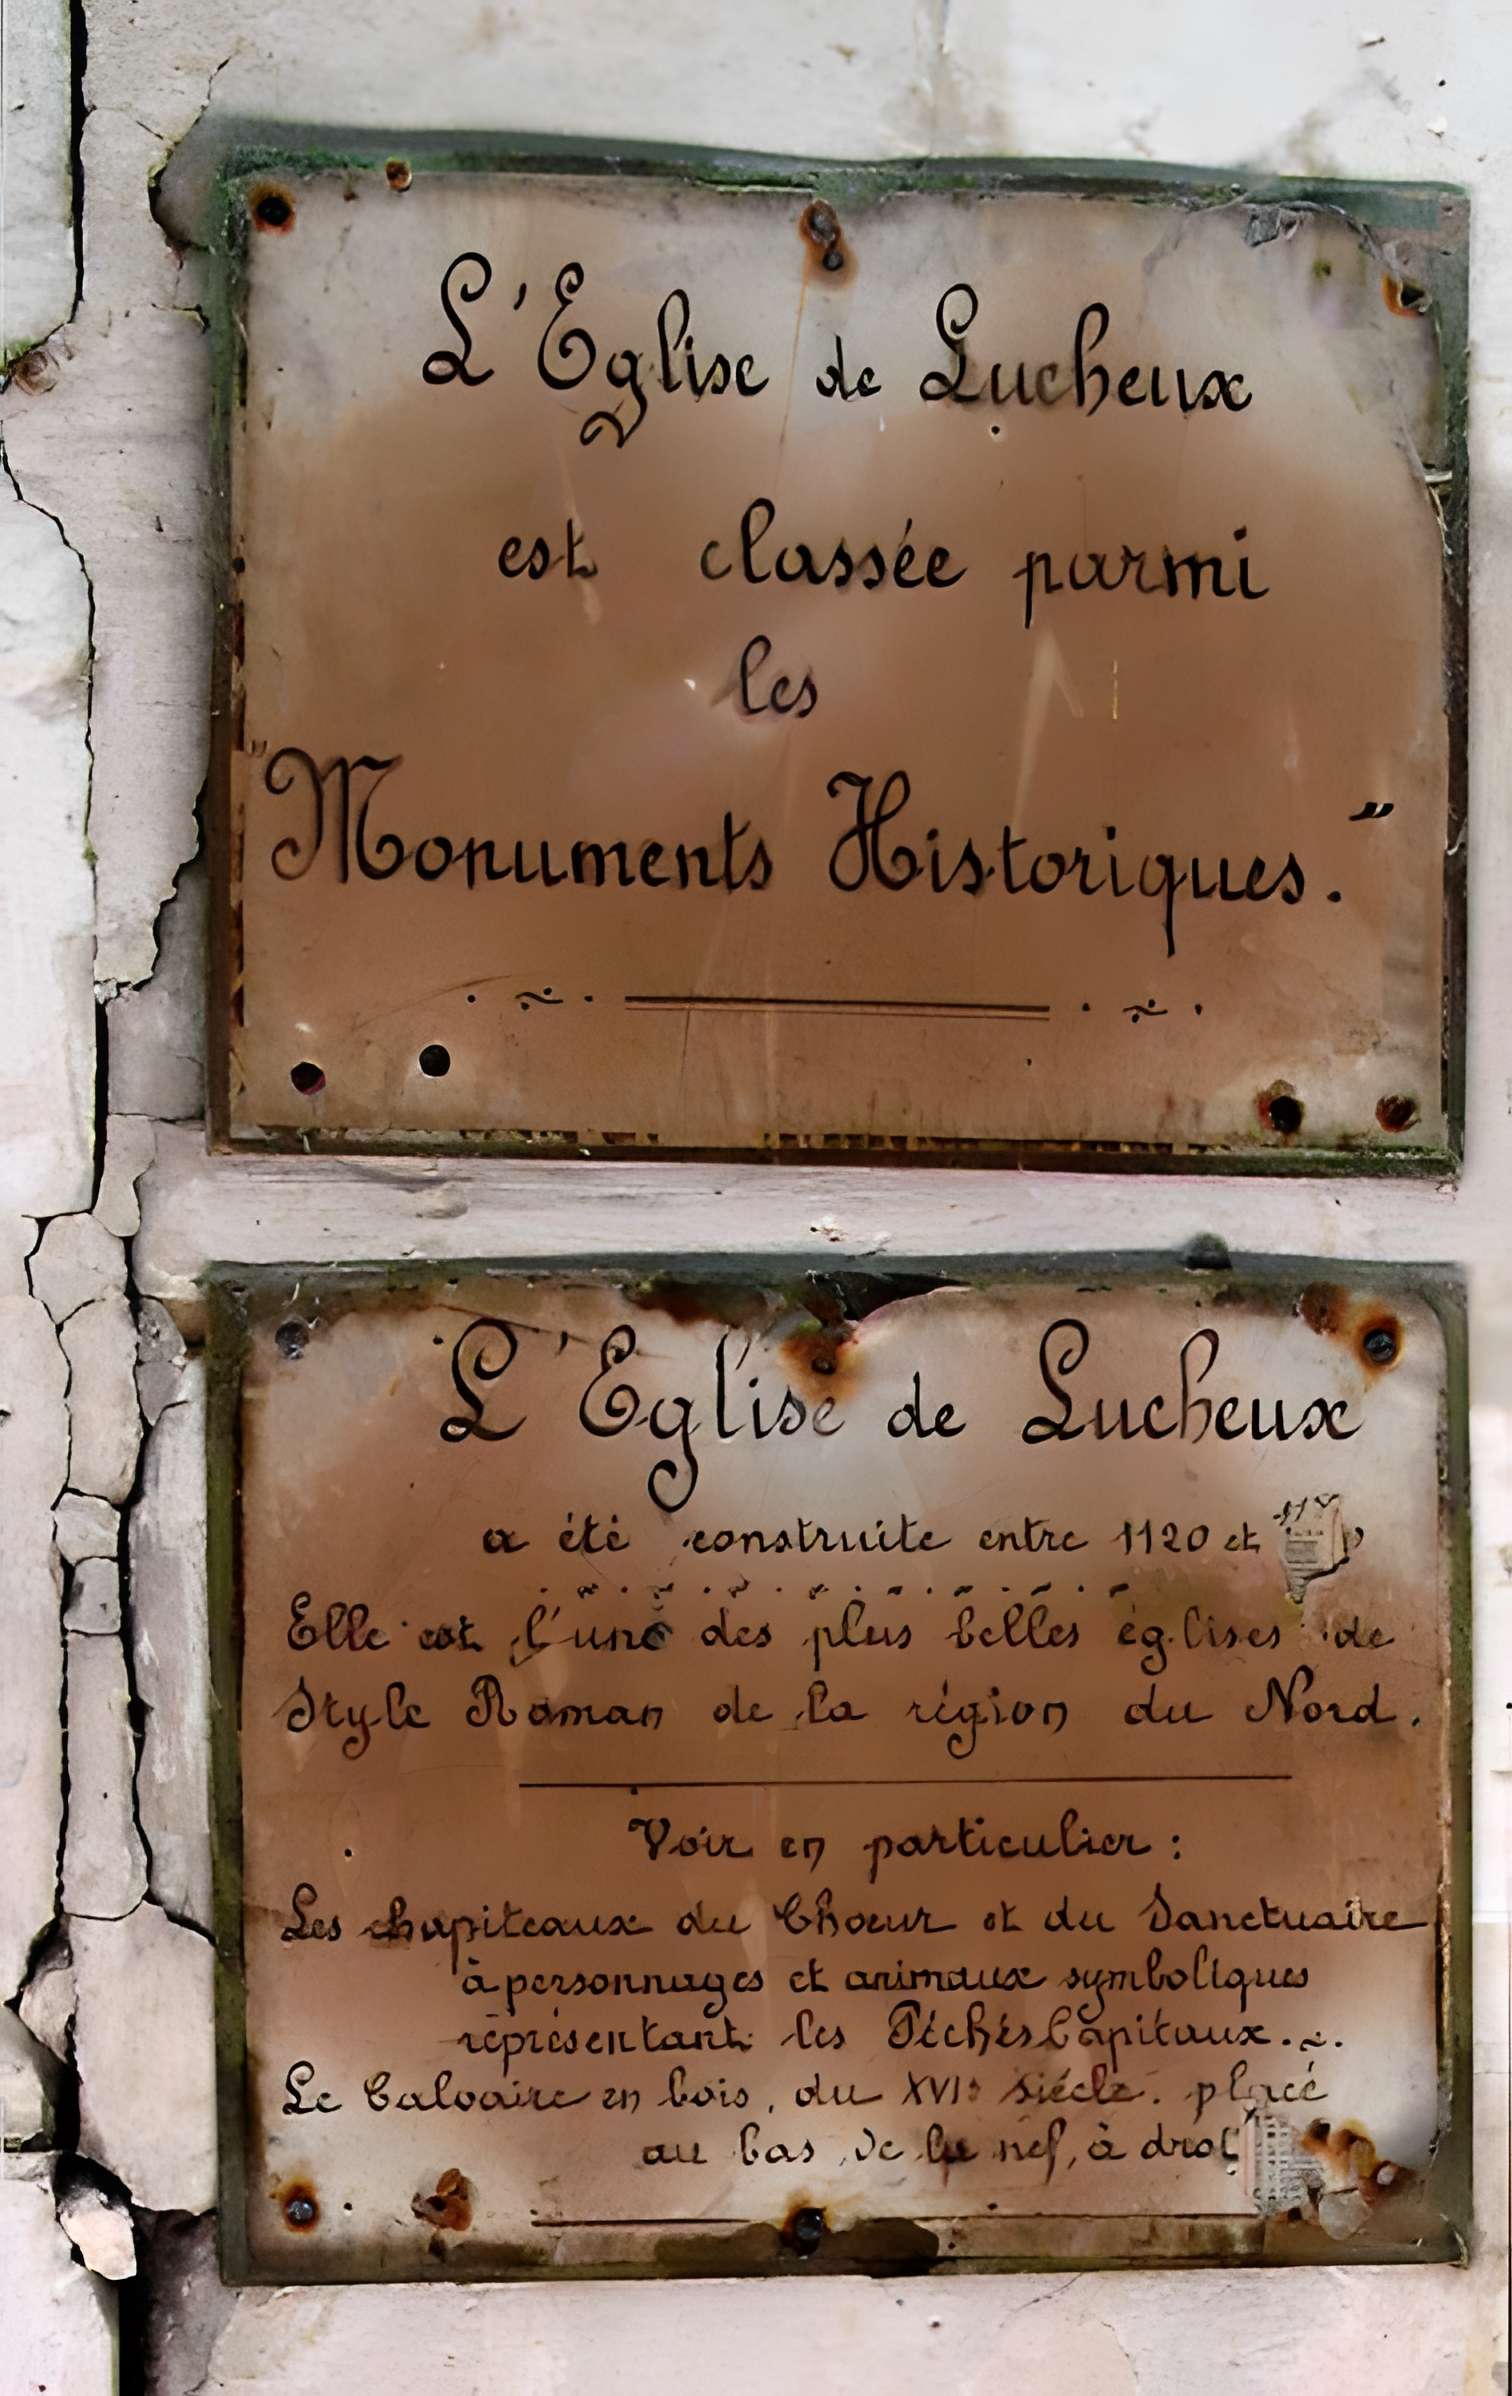 L'Eglise de Lucheux
est classée parmi
les
"Monuments Historiques."
L'Eglise de Lucheux
a été construite entre 1120 et
Elle est l'une des plus belles églises de
Style Roman de la région du Nord.
Voir en particulier :
Les chapiteaux du Choeur et du Sanctuaire
à personnages et animaux symboliques
représentant les Péchés Capitaux.
Le Calvaire en bois, du XVIe siècle. placé
au bas de la nef, à droi